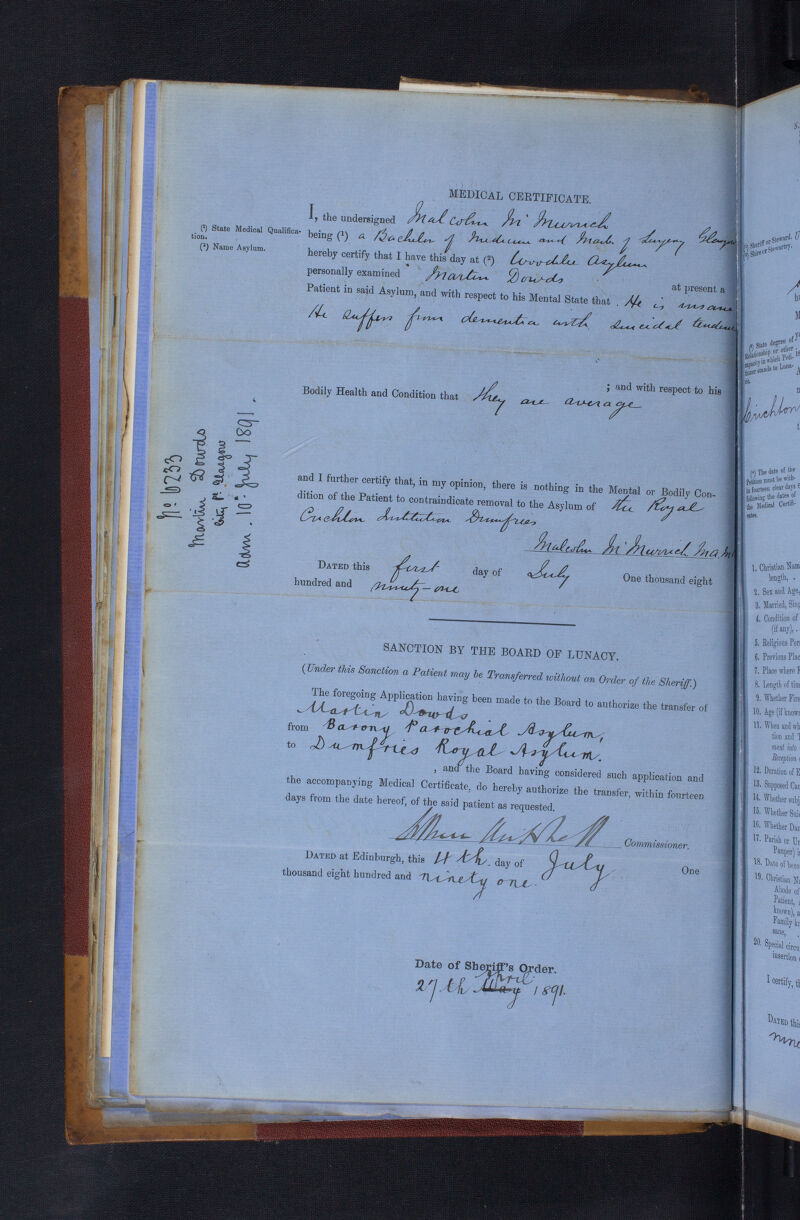 MEDICAL CERTIFICATE.
(¹) State Medical Qualifica-
tion.
(²) Name Asylum.
I, the undersigned Malcolm McMurrich
being (¹) a Bachelor of Medicine and Master of Surgery Glasgow
hereby certify that I have this day at (²) Woodilee Asylum
personally examined Martin Dowds at present a
Patient in said Asylum, and with respect to his Mental State that He is insane
He suffers from dementia with suicidal
; and with respect to his
Bodily Health and Condition that they are average
No 6233
Martin Dowds
City Ph Glasgow
Adm. 10th July 1891.
and I further certify that, in my opinion, there is nothing in the Mental or Bodily Con-
dition of the Patient to contraindicate removal to the Asylum of the Royal
Crichton Institution Dumfries
Malcolm McMurrich
DATED this first day of July One thousand eight
hundred and ninety-one
SANCTION BY THE BOARD OF LUNACY.
(Under this Sanction a Patient may be Transferred without an Order of the Sheriff.)
The foregoing Application having been made to the Board to authorize the transfer of
Martin Dowds
from Barony Parochial Asylum,
to Dumfries Royal Asylum.
, and the Board having considered such application and
the accompanying Medical Certificate, do hereby authorize the transfer, within fourteen
days from the date hereof, of the said patient as requested.
Commissioner.
DATED at Edinburgh, this 4th day of July One
thousand eight hundred and ninety one.
Date of Sheriff's Order.
April
27th May 1891.
(¹) Sheriff or Steward.
(²) Shire or Stewartry.
(³) State degree of
Relationship or other
capacity in which Peti-
tioner stands to Luna-
tic.
Crichton
(⁴) The date of the
Petition must be with-
in fourteen clear days
following the dates of
the Medical Certifi-
cates.
1. Christian
length, .
2. Sex and Age,
3. Married,
4. Condition of
(if any), .
5. Religious
6. Previous
7. Place where
8. Length of
9. Whether
10. Age (if
11. When and
tion and
ment into
Reception
12. Duration of
13. Supposed
14. Whether
15. Whether
16. Whether
17. Parish or
Pauper)
18. Date of
19. Christian
Abode of
Patient,
known),
Family
sane,
20. Special
insertion
I certify,
DATED this